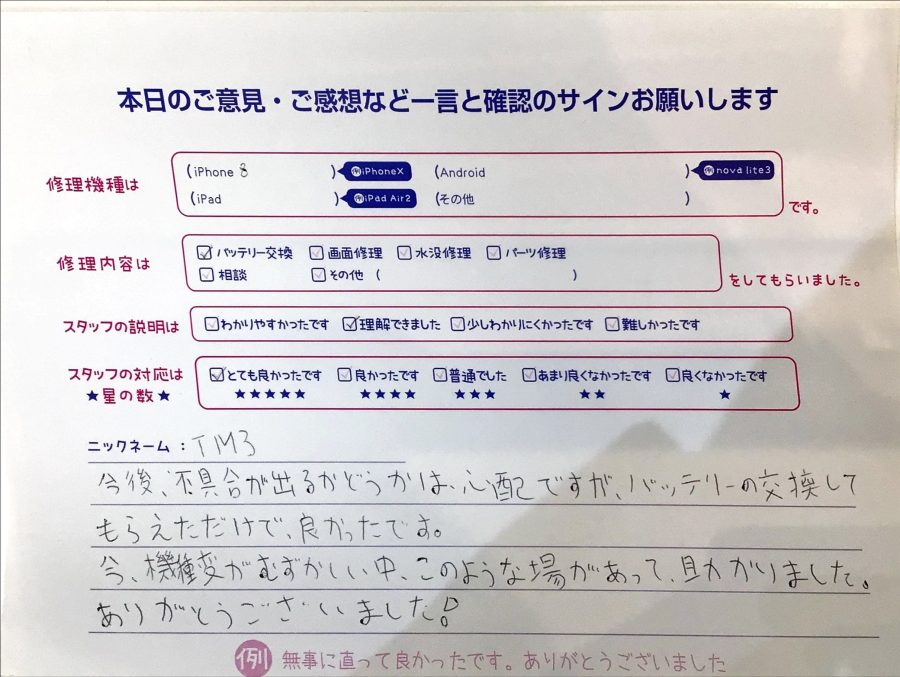 本日のご意見・ご感想など一言と確認のサインお願いします
修理機種は (iPhone 8 ) 例iPhoneX (Android ) 例nova lite3
(iPad ) 例iPad Air2 (その他 ) です。
修理内容は バッテリー交換 画面修理 水没修理 パーツ修理
相談 その他 ( ) をしてもらいました。
スタッフの説明は わかりやすかったです 理解できました 少しわかりにくかったです 難しかったです
スタッフの対応は とても良かったです 良かったです 普通でした あまり良くなかったです 良くなかったです
★星の数★ ★★★★★ ★★★★ ★★★ ★★ ★
ニックネーム：TM3
今後、不具合が出るかどうかは、心配ですが、バッテリーの交換して
もらえただけで、良かったです。
今、機種変がむずかしい中、このような場があって、助かりました。
ありがとうございました!
例 無事に直って良かったです。ありがとうございました